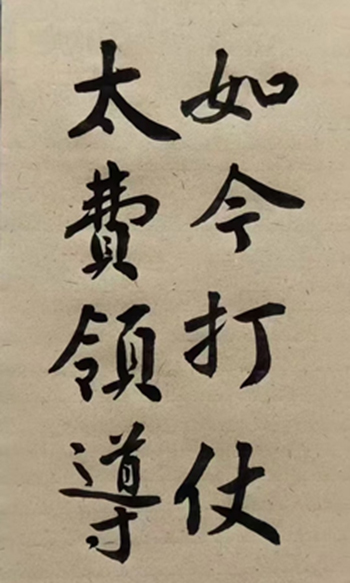 如今打仗
太費領導